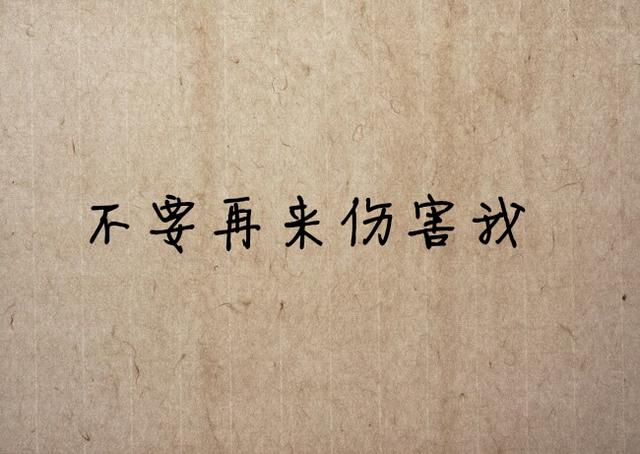 不要再来伤害我